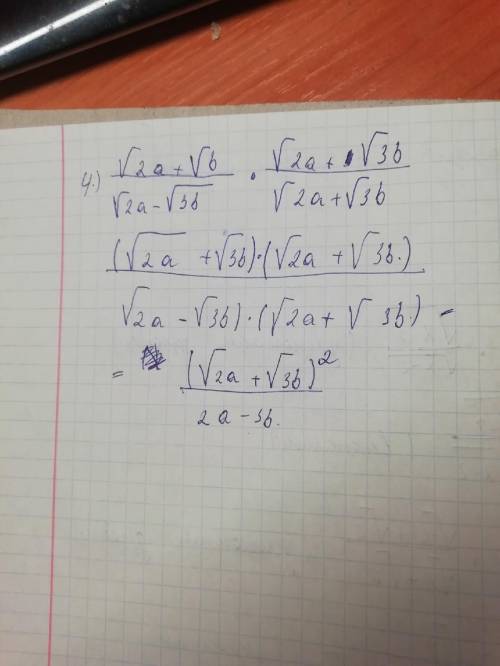 4.) (√2a + √b)/(√2a - √3b) · (√2a + √3b)/(√2a + √3b)
(√2a + √3b)·(√2a + √3b.)
√2a - √3b)·(√2a + √3b) =
= (√2a + √3b)²
2a - 3b.